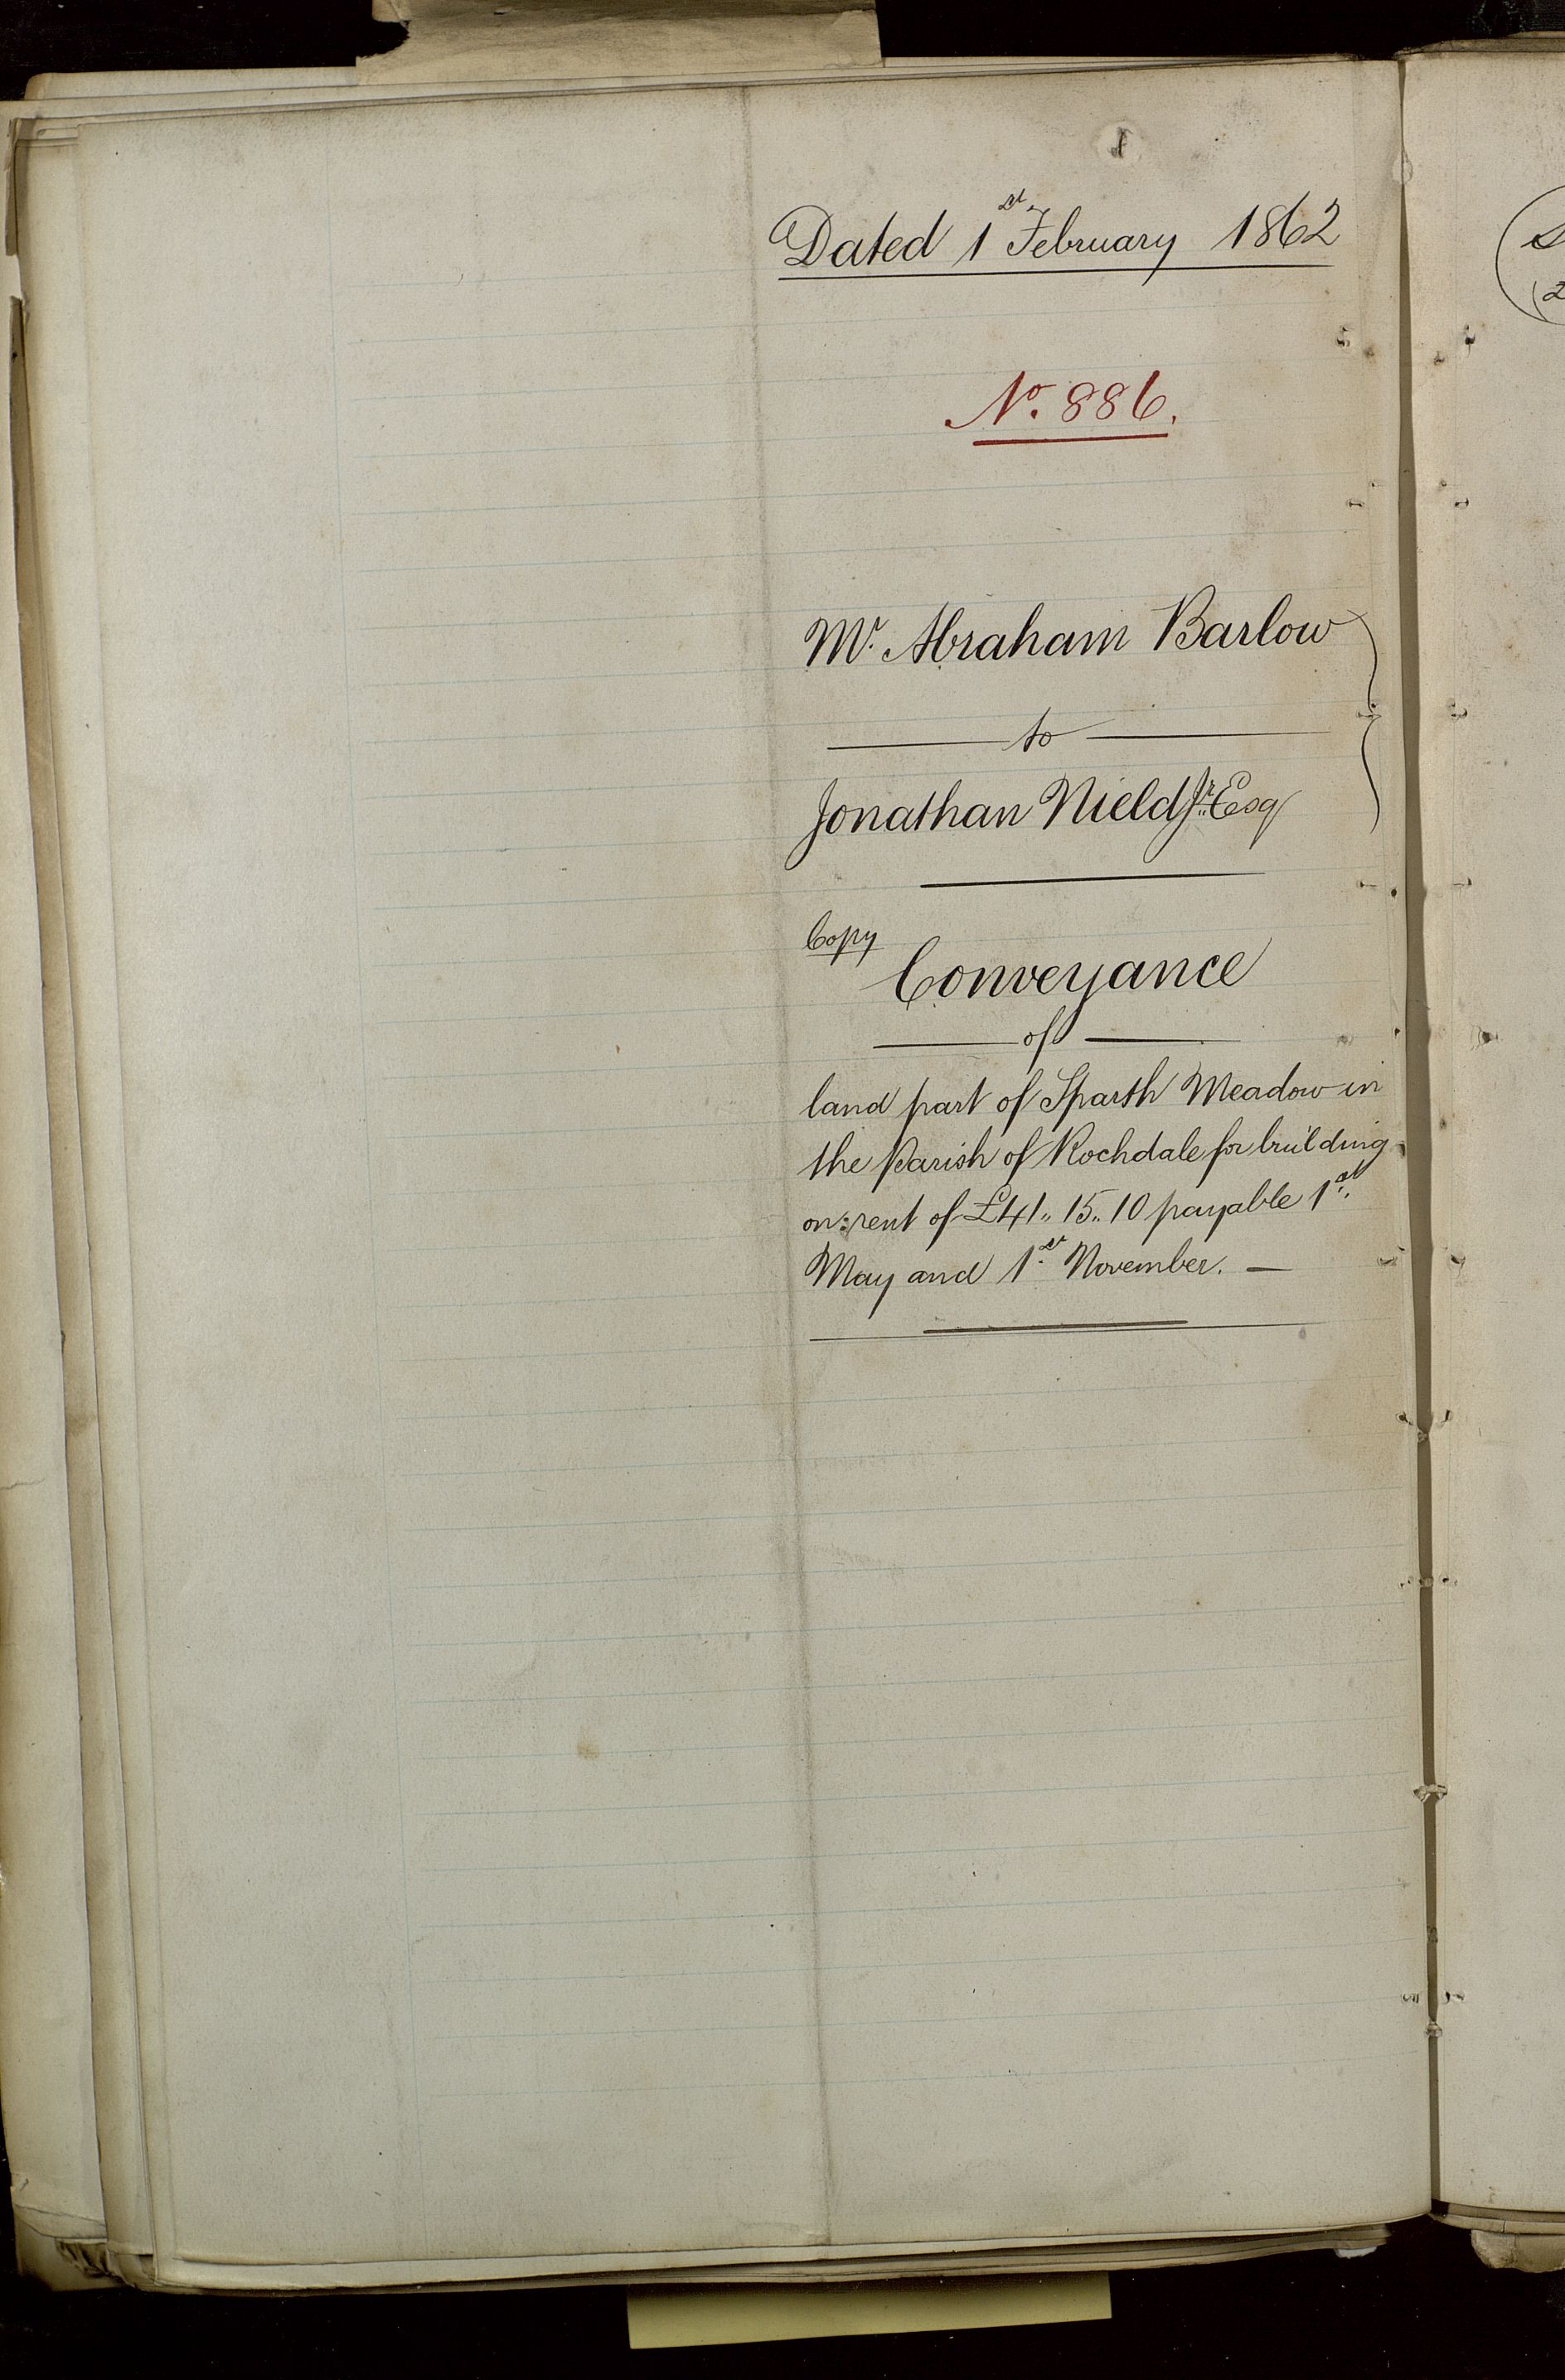 Dated 1st February 1862
No. 886.
Mr. Abraham Barlow
to
Jonathan Nield Jr. Esq
Copy
Conveyance
of
land part of Sparth Meadow in
the Parish of Rochdale for building
on: rent of £41,, 15,, 10 payable 1st.
May and 1st. November. —